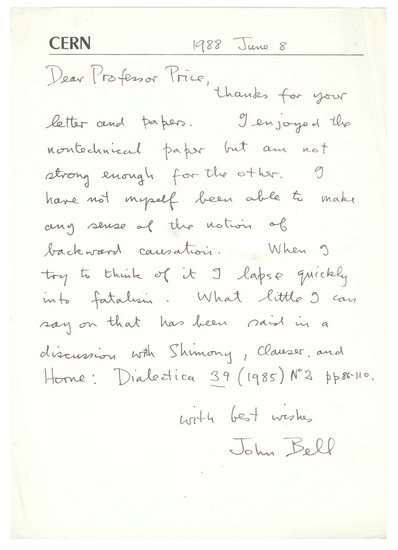 CERN 1988 June 8
Dear Professor Price,
thanks for your
letter and papers. I enjoyed the
nontechnical paper but am not
strong enough for the other. I
have not myself been able to make
any sense of the notion of
backward causation. When I
try to think of it I lapse quickly
into fatalism. What little I can
say on that has been said in a
discussion with Shimony, Clauser, and
Horne: Dialectica 39 (1985) Nº2 pp 86-110.
with best wishes
John Bell